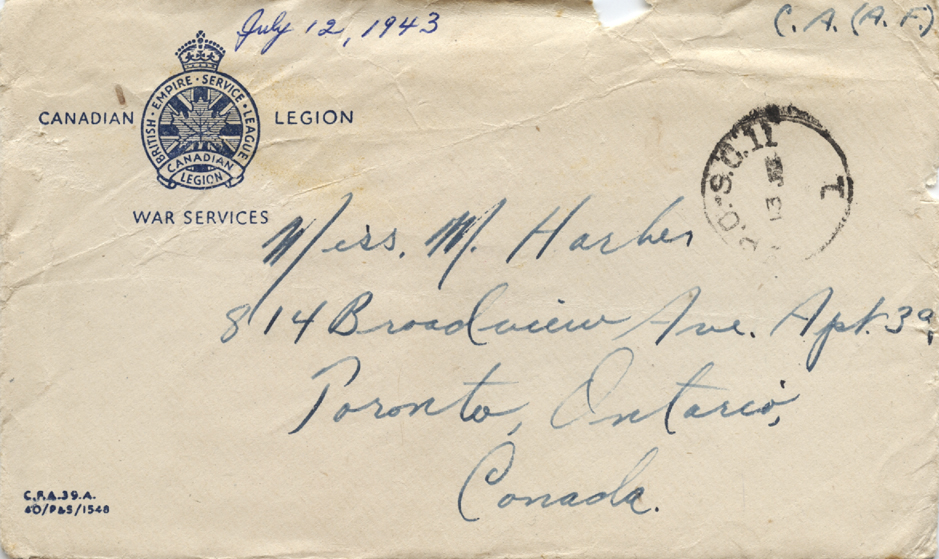 July 12, 1943
C. A. (A. F.)
CANADIAN LEGION
BRITISH · EMPIRE · SERVICE · LEAGUE
CANADIAN
LEGION
WAR SERVICES
S.C. 11
13
T
Miss. M. Harber
814 Broadview Ave. Apt. 39,
Toronto, Ontario,
Canada.
C.F.A.39.A.
60/P&S/1548